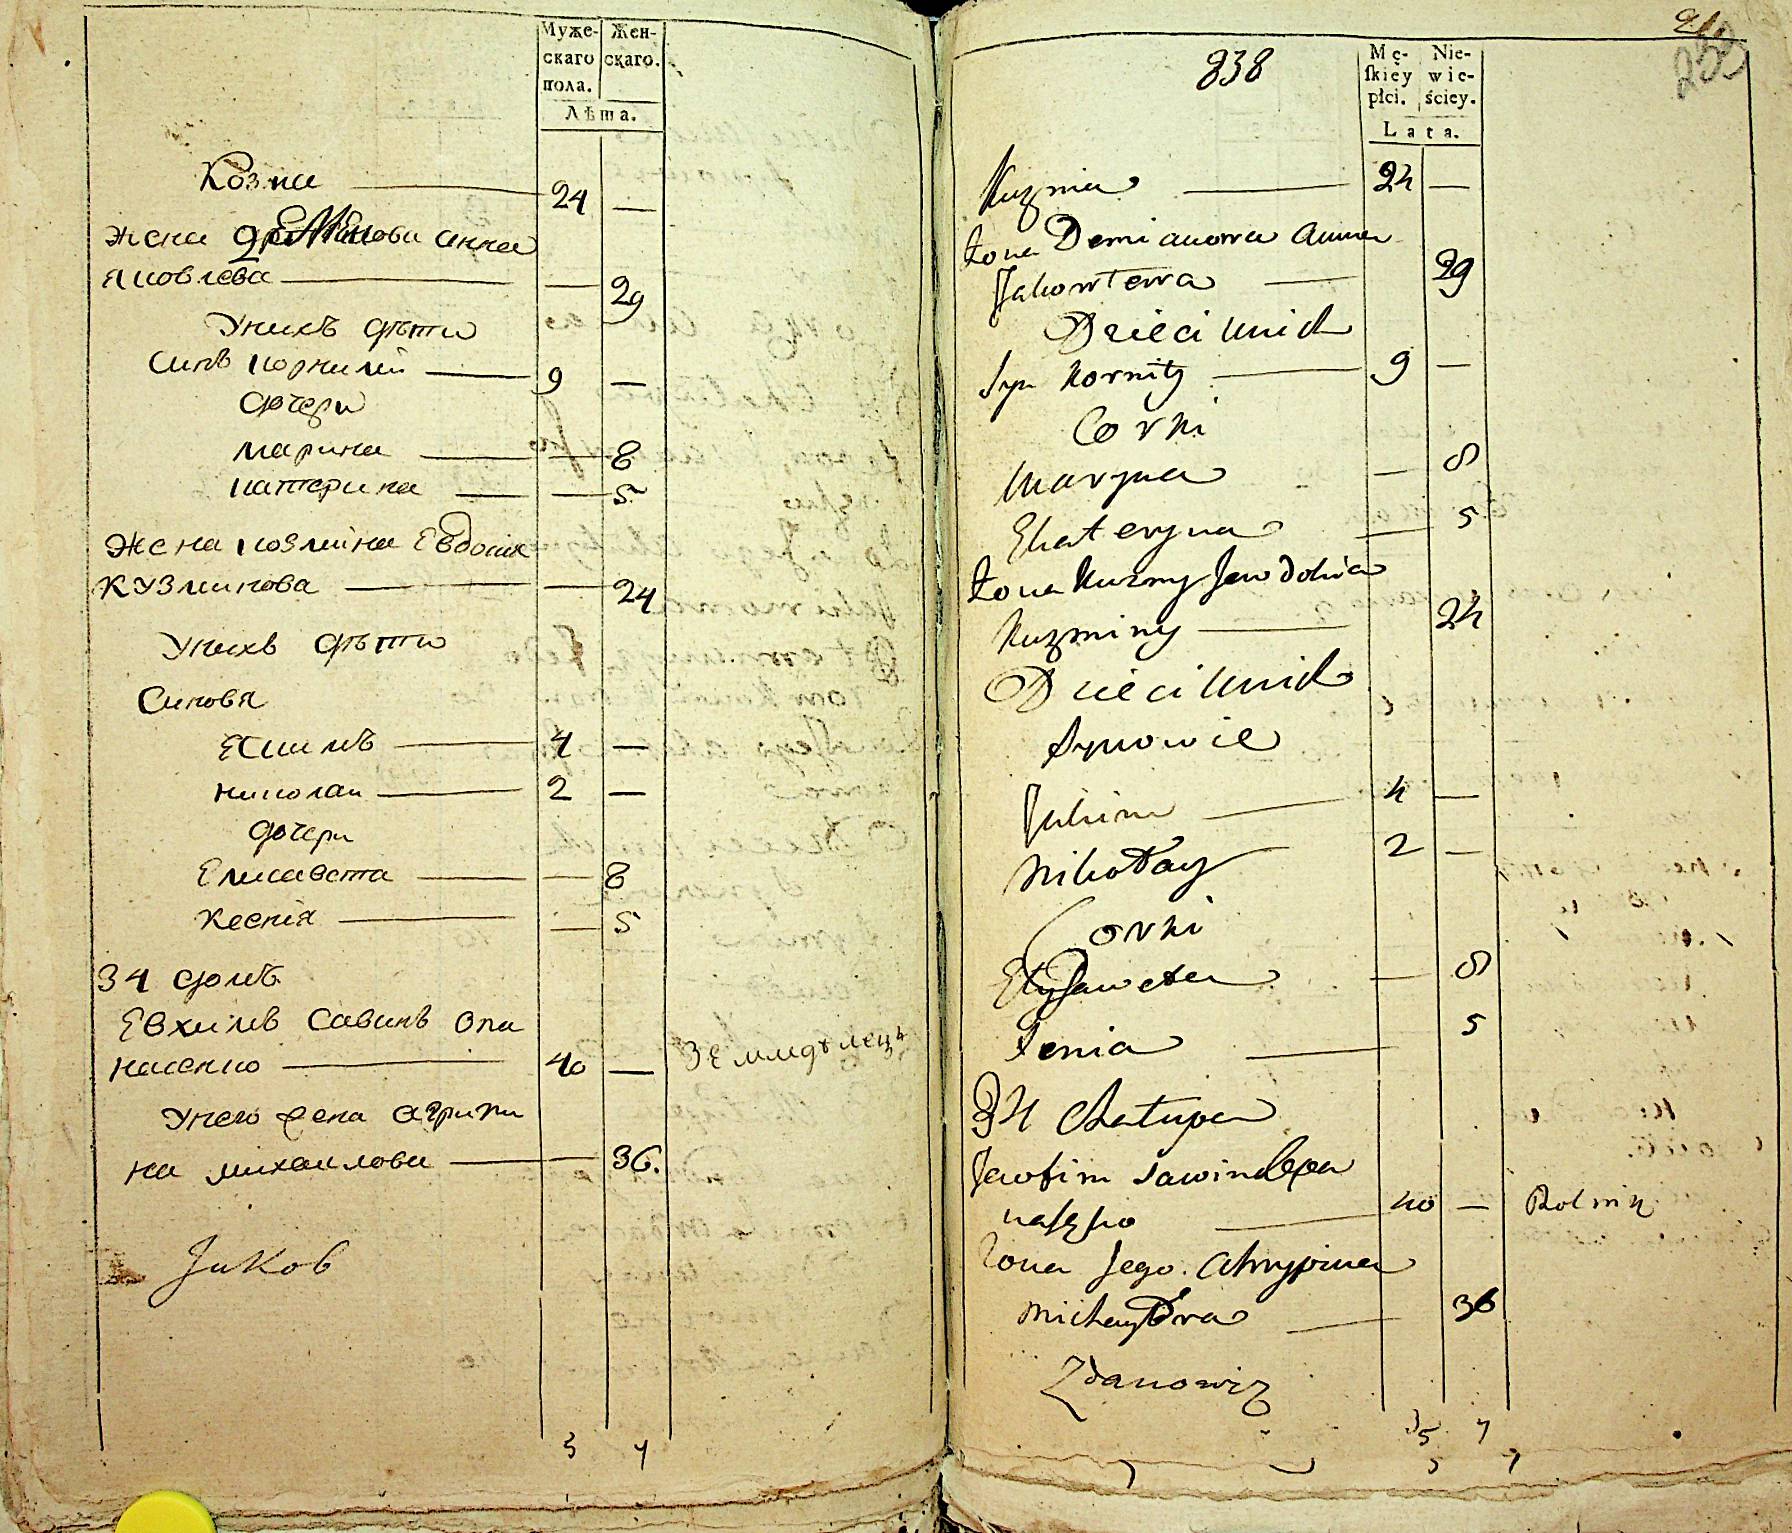 Муже- Жен-
скаго скаго.
пола.
Лѣта.
Козма 24 —
жена Демянова анна
Яковлева — 29
Унихъ дѣти
Синъ корнилій 9 —
дочери
марина — 8
катерина — 5
жена козмина Евдокия
кузминова — 24
Унихъ дѣти
Синовя
екимъ 4 —
николай 2 —
дочери
Елисавета — 8
Ксенія — 5
34 домъ
Евхимъ Савинъ Опа
насенко 40 — Земледѣлецъ
Унего жена агрипи
на михаилова — 36.
Яков
3 7
21.
238
838
Mę- Nie-
skiey wie-
płci. ściey.
Lata.
Kuzma 24 —
Żona Demianowa Anna
Jakowlewa 29
Dzieci unich
Syn Korniły 9 —
Corki
Maryna — 8
Ekateryna — 5
Żona Kuzmy Jewdokia
Kuzminy 24
Dzieci unich
Synowie
Jakim 4 —
Nikołay 2 —
Corki
Elyzaweta — 8
Xenia — 5
34 Chatupa
Jewfim Sawin Opa
nasęko 40 — Rolnik
Zona Jego. Ahrypina
Michayłowa 36
Zdanowicz
5 7
5 7